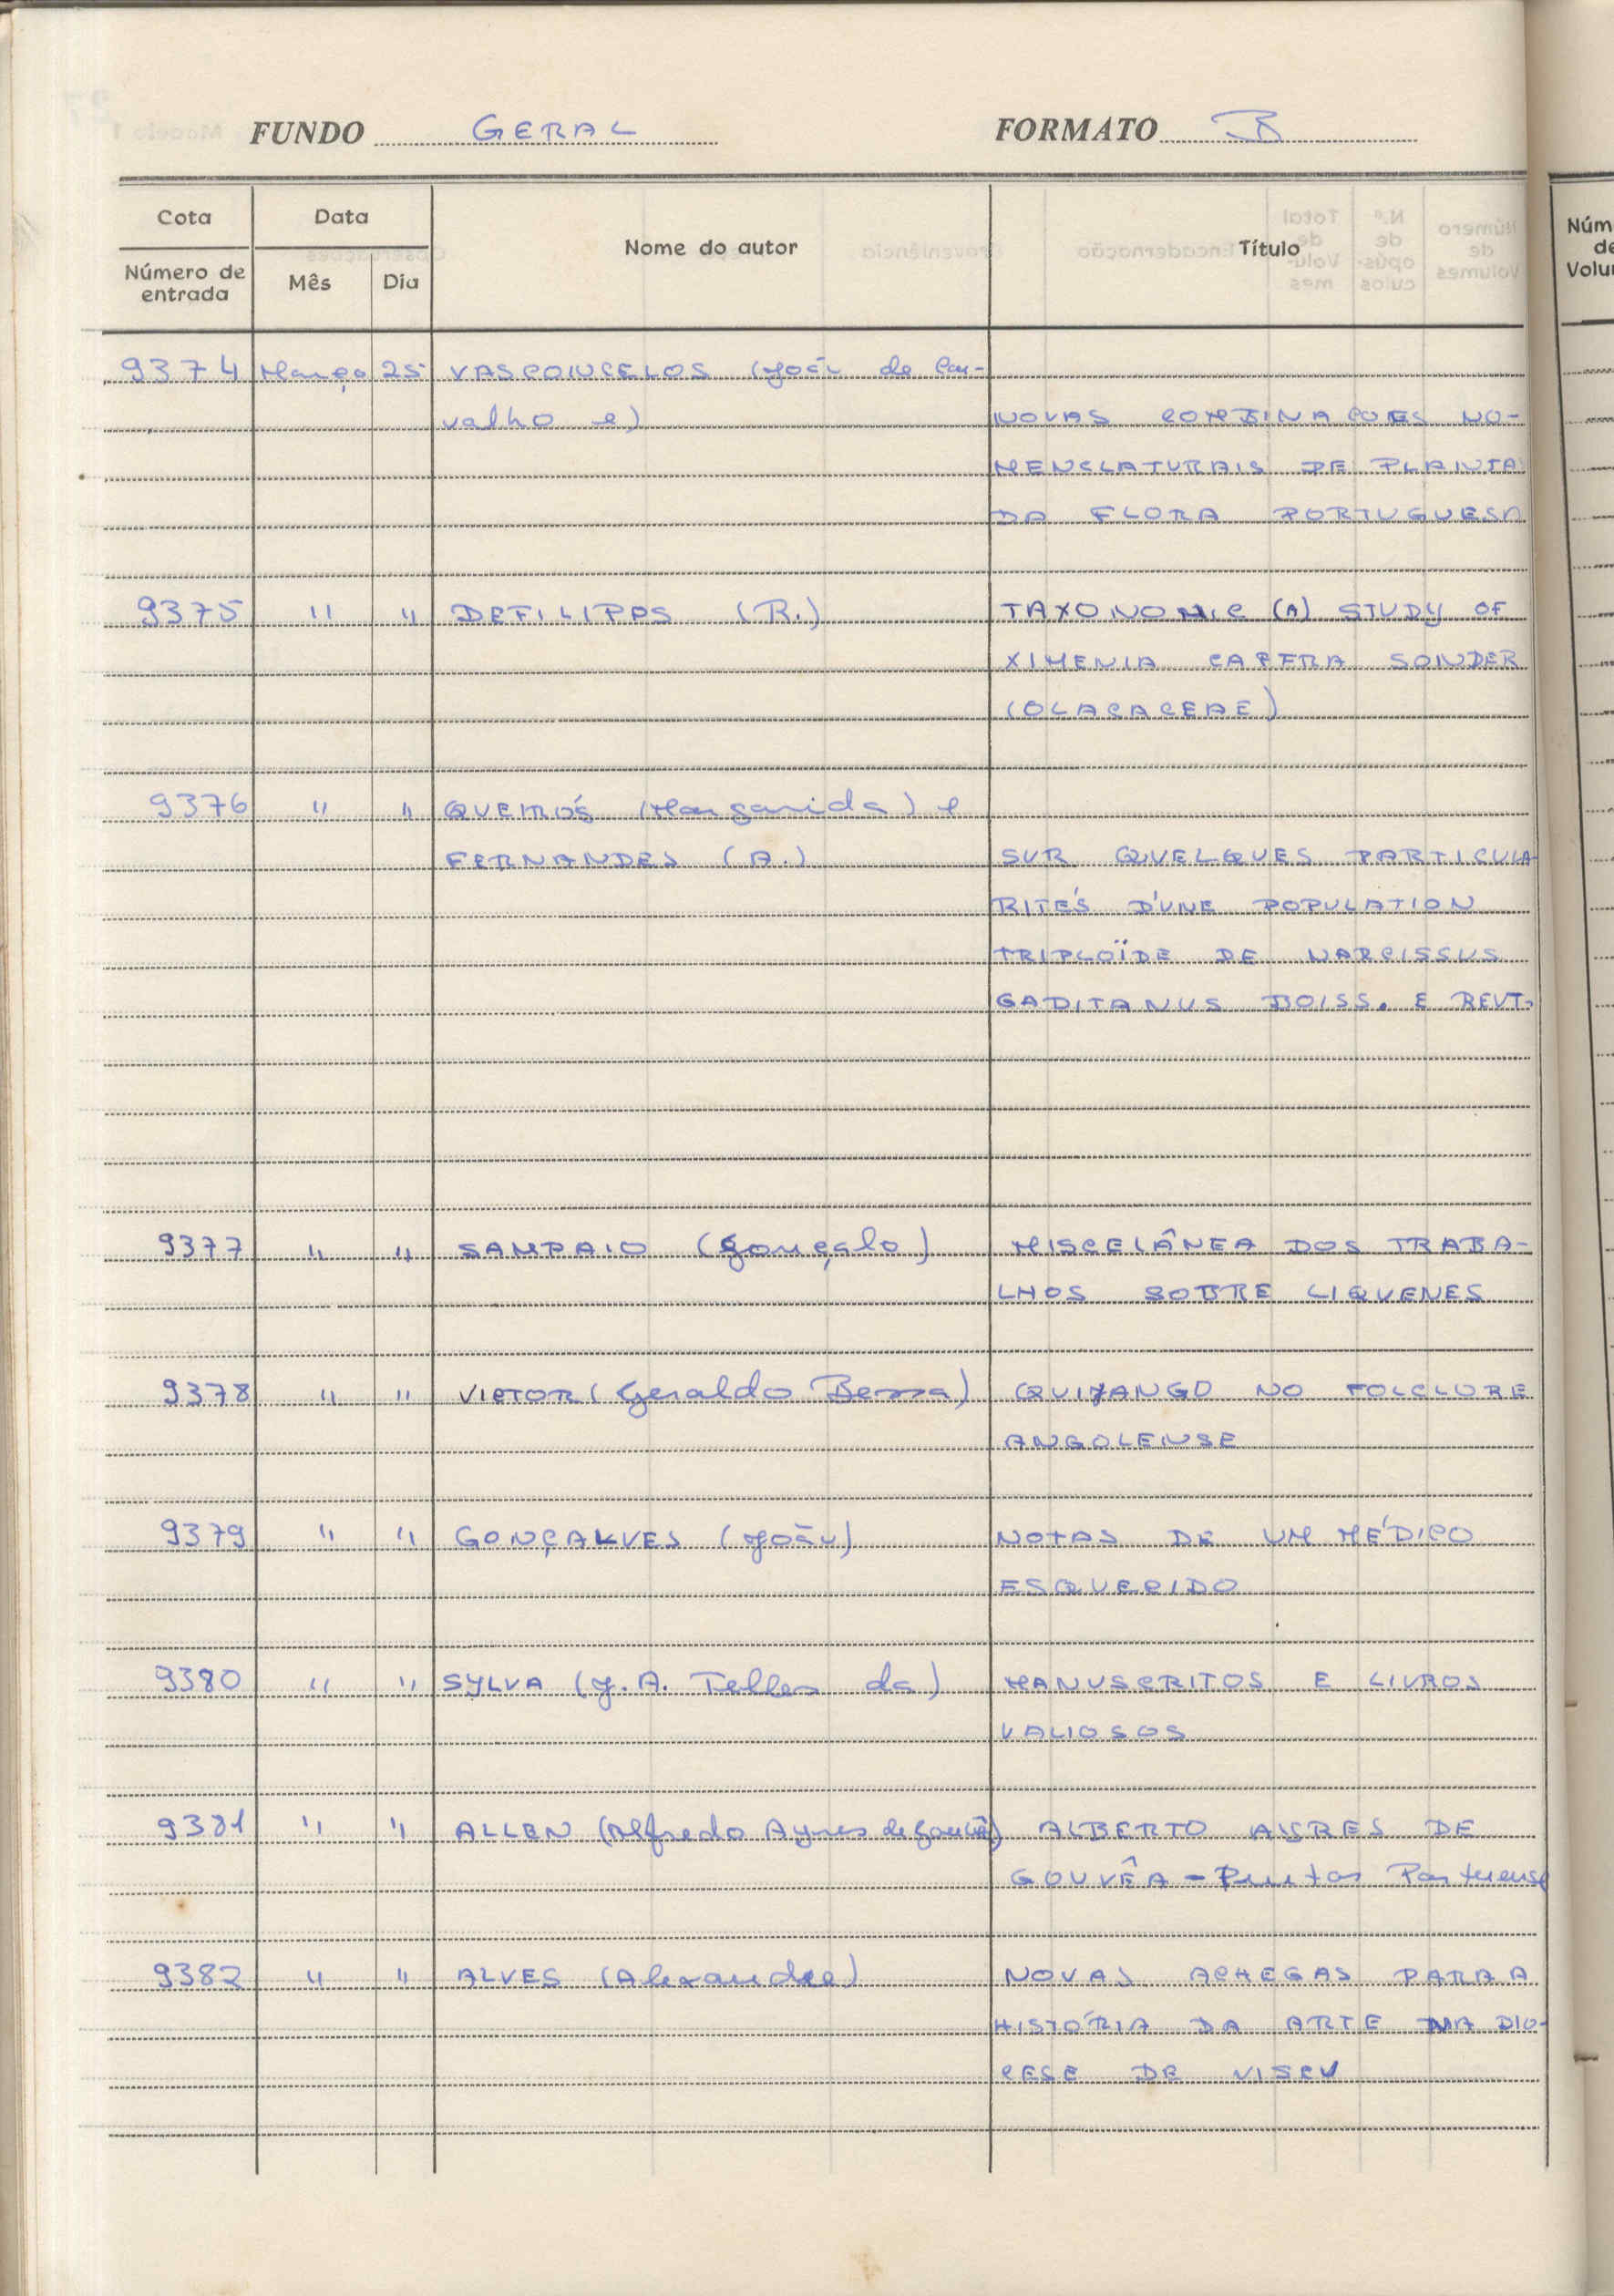 FUNDO GERAL FORMATO B
Cota Data Nome do autor Título
Número de entrada Mês Dia
9374 Março 25 VASCONCELOS (João de Car-
valho e) NOVAS COMBINAÇOES NO-
MENCLATURAIS DE PLANTA
DA FLORA PORTUGUESA
9375 " " DEFILIPPS (R.) TAXONOMIC (A) STUDY OF
XIMENIA CAFFRA SONDER
(OLACACEAE)
9376 " " QUEIRÓS (Margarida) e
FERNANDES (A.) SUR QUELQUES PARTICULA
RITÉS D'UNE POPULATION
TRIPLOÏDE DE NARCISSUS
GADITANUS BOISS. E REUT.
9377 " " SAMPAIO (Gonçalo) MISCELÂNEA DOS TRABA-
LHOS SOBRE LIQUENES
9378 " " VICTOR (Geraldo Bessa) QUIJANGO NO FOLCLORE
ANGOLENSE
9379 " " GONÇALVES (João) NOTAS DE UM MÉDICO
ESQUECIDO
9380 " " SYLVA (J. A. Telles da) MANUSCRITOS E LIVROS
VALIOSOS
9381 " " ALLEN (Alfredo Ayres de Gouvêa) ALBERTO AYRES DE
GOUVÊA - Portuense
9382 " " ALVES (Alexandre) NOVAS ACHEGAS PARA A
HISTÓRIA DA ARTE NA DIO-
CESE DE VISEU
Núm
de
Volu